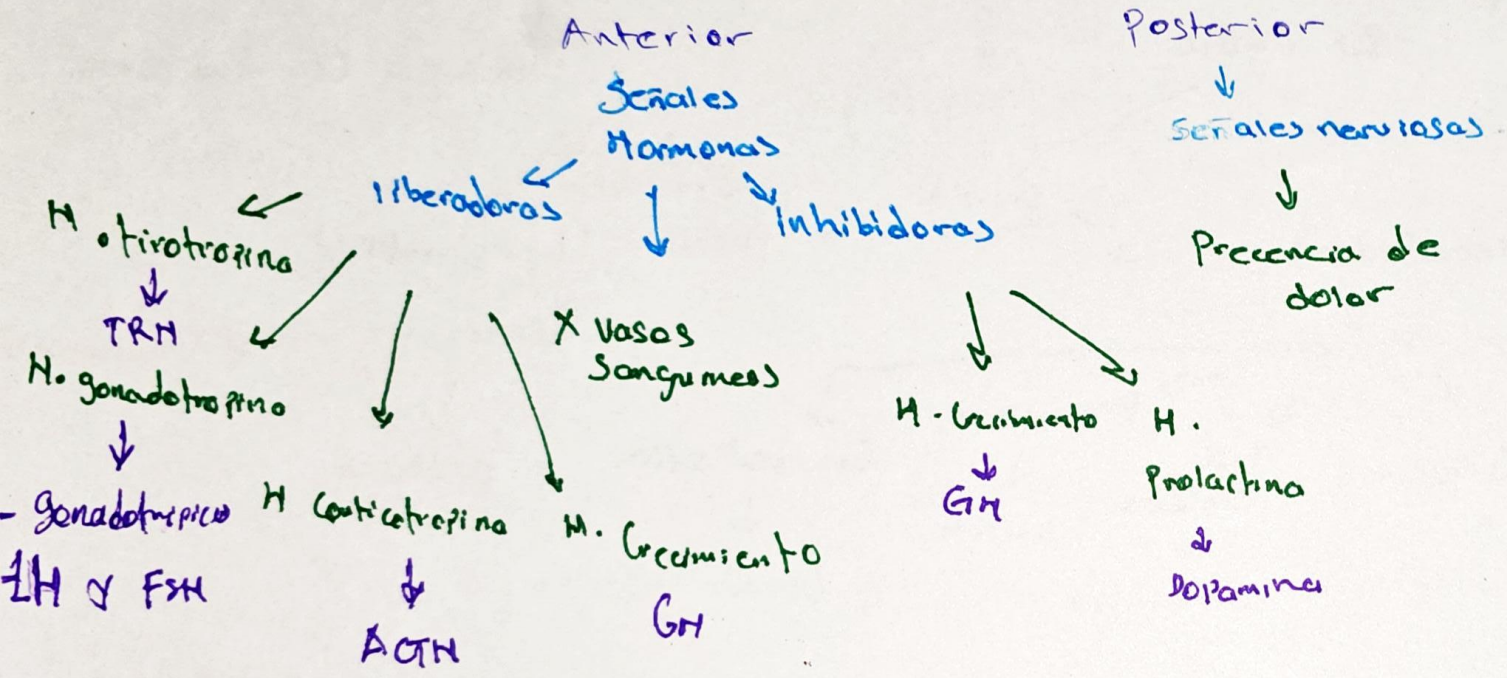 Anterior
Señales
Hormonas
liberadoras
Inhibidoras
H. tirotropina
TRH
H. gonadotropina
- gonadotrópico
LH y FSH
H Corticotropina
ACTH
H. Crecimiento
GH
X vasos
Sanguineos
H. Crecimiento
GH
H.
Prolactina
Dopamina
Posterior
Señales nerviosas
Precencia de
dolor